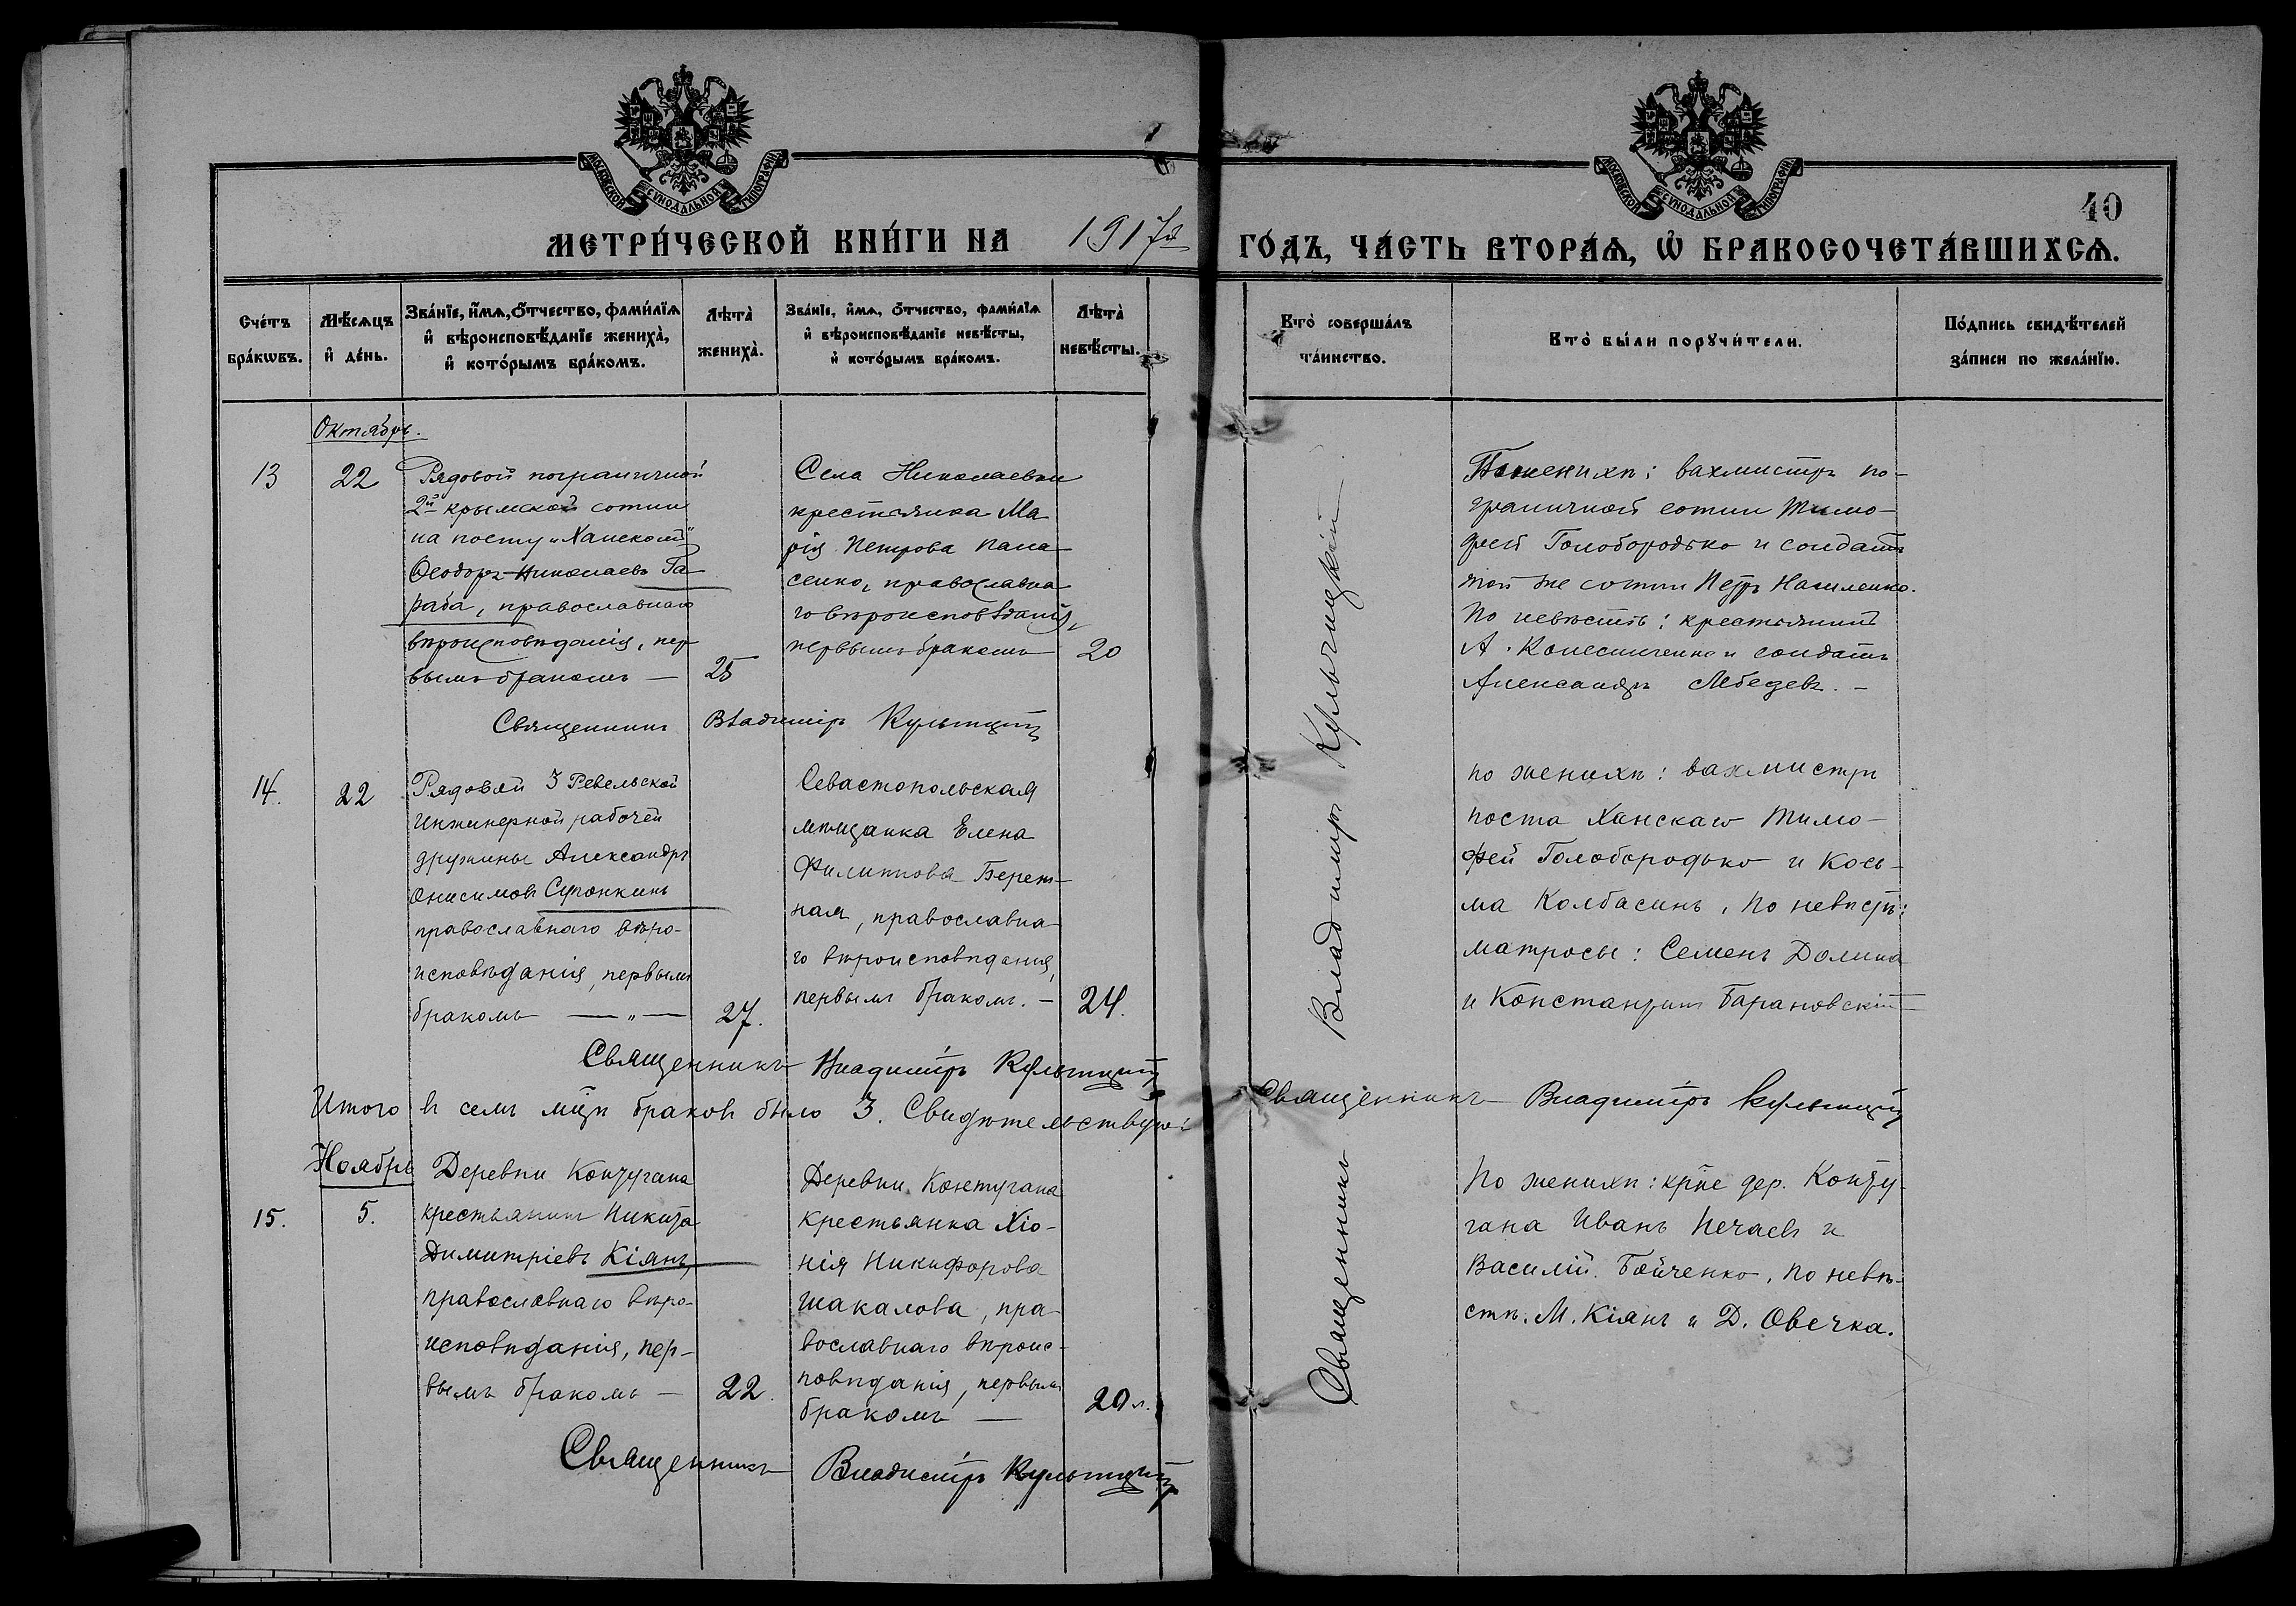 МОСКОВСКОЙ СѴНОДАЛЬНОЙ ТИПОГРАФІИ
МОСКОВСКОЙ СѴНОДАЛЬНОЙ ТИПОГРАФІИ
40
МЕТРИ́ЧЕСКОЙ КНИ́ГИ НА 1917й ГО́ДЪ, ЧА́СТЬ ВТОРА́Я, Ѡ БРАКОСОЧЕТА́ВШИХСЯ.
Сче́тъ
бра́кωвъ.
Мѣ́сяцъ
и де́нь.
Зва́нїе, и́мя, о́тчество, фами́лїя
и вѣроисповѣ́данїе жениха̀,
и кото́рымъ бра́комъ.
Лѣта̀
жениха̀.
Зва́нїе, и́мя, о́тчество, фами́лїя
и вѣроисповѣ́данїе невѣ́сты,
и кото́рымъ бра́комъ.
Лѣта̀
невѣ́сты.
Кто̀ соверша́лъ
та́инство.
Кто̀ бы́ли порꙋчи́тели.
По́дпись свидѣ́телей
за́писи по жела́нїю.
Октябрь.
13
22
Рядовой пограничной
2й крымской сотни
на посту „Ханском"
Ѳеодоръ Николаевъ Га
раба, православнаго
вѣроисповѣданія, пер
вымъ бракомъ —
25
Села Николаевки
крестьянка Ма
рія Петрова Пана
сенко, православна
го вѣроисповѣданія,
первымъ бракомъ
20
По женихѣ: вахмистръ по-
граничной сотни Тимо-
фей Голобородько и солдатъ
той же сотни Петръ
По невѣстѣ: крестьянинъ
А. Колесниченко и солдатъ
Александръ Лебедевъ. —
Священникъ Владиміръ Кульчицкій
14.
22
Рядовой 3 Ревельской
инженерной рабочей
дружины Александръ
Онисимовъ Супонкинъ
православнаго вѣро-
исповѣданія, первымъ
бракомъ — „ —
27.
Севастопольская
мѣщанка Елена
Филиппова Береж-
ная, православна
го вѣроисповѣданія,
первымъ бракомъ. —
24.
по женихѣ: вахмистръ
поста Ханскаго Тимо-
фей Голобородько и Кось-
ма Колбасинъ, по невѣстѣ:
матросы: Семенъ Долина
и Константинъ Барановскій
Священникъ Владиміръ Кульчицкій
Итого в семъ мцѣ браковъ было 3. Свидѣтельствую: Священникъ Владиміръ Кульчицкій
Ноябрь
15.
5.
Деревни Контугана
крестьянинъ Никита
Димитріевъ Кіянъ,
православнаго вѣро-
исповѣданія, пер-
вымъ бракомъ —
22.
Деревни Контугана
крестьянка Хіо-
нія Никифорова
Шакалова, пра-
вославнаго вѣроис-
повѣданія, первымъ
бракомъ —
20 л.
По женихѣ: кр̃не дер. Конту-
гана Иванъ Нечаевъ и
Василій Бойченко, по невѣ-
стѣ. М. Кіянъ и Д. Овечка.
Священникъ Владиміръ Кульчицкій
Священникъ Владиміръ Кульчицкій